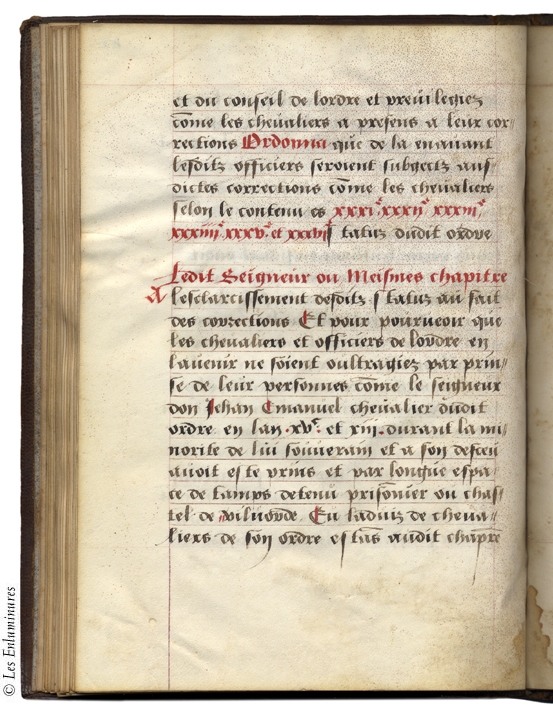 et du conseil de lordre et preuilegiez
cõme les cheualiers a presens a leur cor=
rections Ordonna que de la en auant
lesditz officiers seroient subgectz aus=
dictes corrections cõme les cheualiers
selon le contenu es xxxi.e xxxii.e xxxiii.e
xxxiiii.e xxxv.e et xxxvi.e statuz dudit ordre
Ledit Seigneur ou Meismes chapitre
A lesclarcissement desditz statuz au fait
des corrections Et pour pourueoir que
les cheualiers et officiers de lordre en
lauenir ne soient oultragiez par prin=
se de leur personnes cõme le seigneur
don Jehan Emanuel cheualier dudit
ordre en lan .xv.c et xiii. durant la mi
norite de lui souuerain et a son desceu
auoit este prins et par longue espa=
ce de tamps detenu prisonier ou chas=
tel de viluorde En laduiz de cheua=
liers de son ordre estãs audit chap̃re
© Les Enluminures